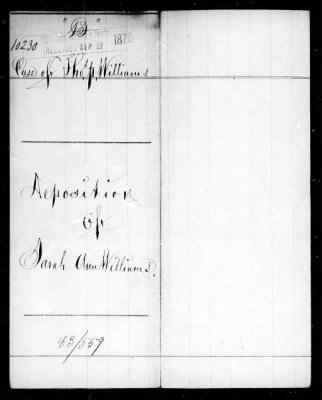 "B"
10230
RECEIVED SEP 22 1878
Case of Tho^s P. Williams
Deposition
of
Sarah Ann Williams.
83/559